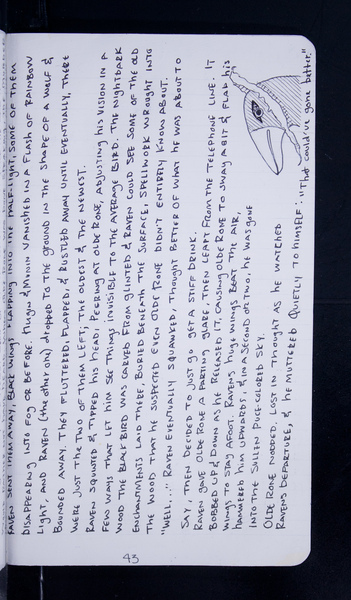 RAVEN SENT THEM AWAY, BLACK WINGS FLAPPING INTO THE HALF-LIGHT, SOME OF THEM
DISAPPEARING INTO FOG OR BEFORE. HUGIN & MUNIN VANISHED IN A FLASH OF RAINBOW
LIGHT, AND RAVEN (THE OTHER ONE) DROPPED TO THE GROUND IN THE SHAPE OF A WOLF &
BOUNDED AWAY. THEY FLUTTERED, FLAPPED, & RUSTLED AWAY UNTIL EVENTUALLY, THERE
WERE JUST THE TWO OF THEM LEFT; THE OLDEST & THE NEWEST.
RAVEN SQUINTED & TIPPED HIS HEAD, PEERING AT OLDE RONE, ADJUSTING HIS VISION IN A
FEW WAYS THAT LET HIM SEE THINGS INVISIBLE TO THE AVERAGE BIRD. THE NIGHTDARK
WOOD THE BLACKBIRD WAS CARVED FROM GLINTED & RAVEN COULD SEE SOME OF THE OLD
ENCHANTMENTS LAID THERE, BURIED BENEATH THE SURFACE, SPELLWORK WROUGHT INTO
THE WOOD THAT HE SUSPECTED EVEN OLDE RONE DIDN'T ENTIRELY KNOW ABOUT.
"WELL..." RAVEN EVENTUALLY SQUAWKED, THOUGHT BETTER OF WHAT HE WAS ABOUT TO
SAY, THEN DECIDED TO JUST GO GET A STIFF DRINK.
RAVEN GAVE OLDE RONE A PARTING GLARE, THEN LEAPT FROM THE TELEPHONE LINE. IT
BOBBED UP & DOWN AS HE RELEASED IT, CAUSING OLDE RONE TO SWAY A BIT & FLAP HIS
WINGS TO STAY AFOOT. RAVEN'S HUGE WINGS BEAT THE AIR,
HAMMERED HIM UPWARDS, & IN A SECOND OR TWO, HE WAS GONE
INTO THE SULLEN PUCE-COLORED SKY.
OLDE RONE NODDED, LOST IN THOUGHT AS HE WATCHED
RAVEN'S DEPARTURE, & HE MUTTERED QUIETLY TO HIMSELF: "THAT COULD'VE GONE BETTER."
43